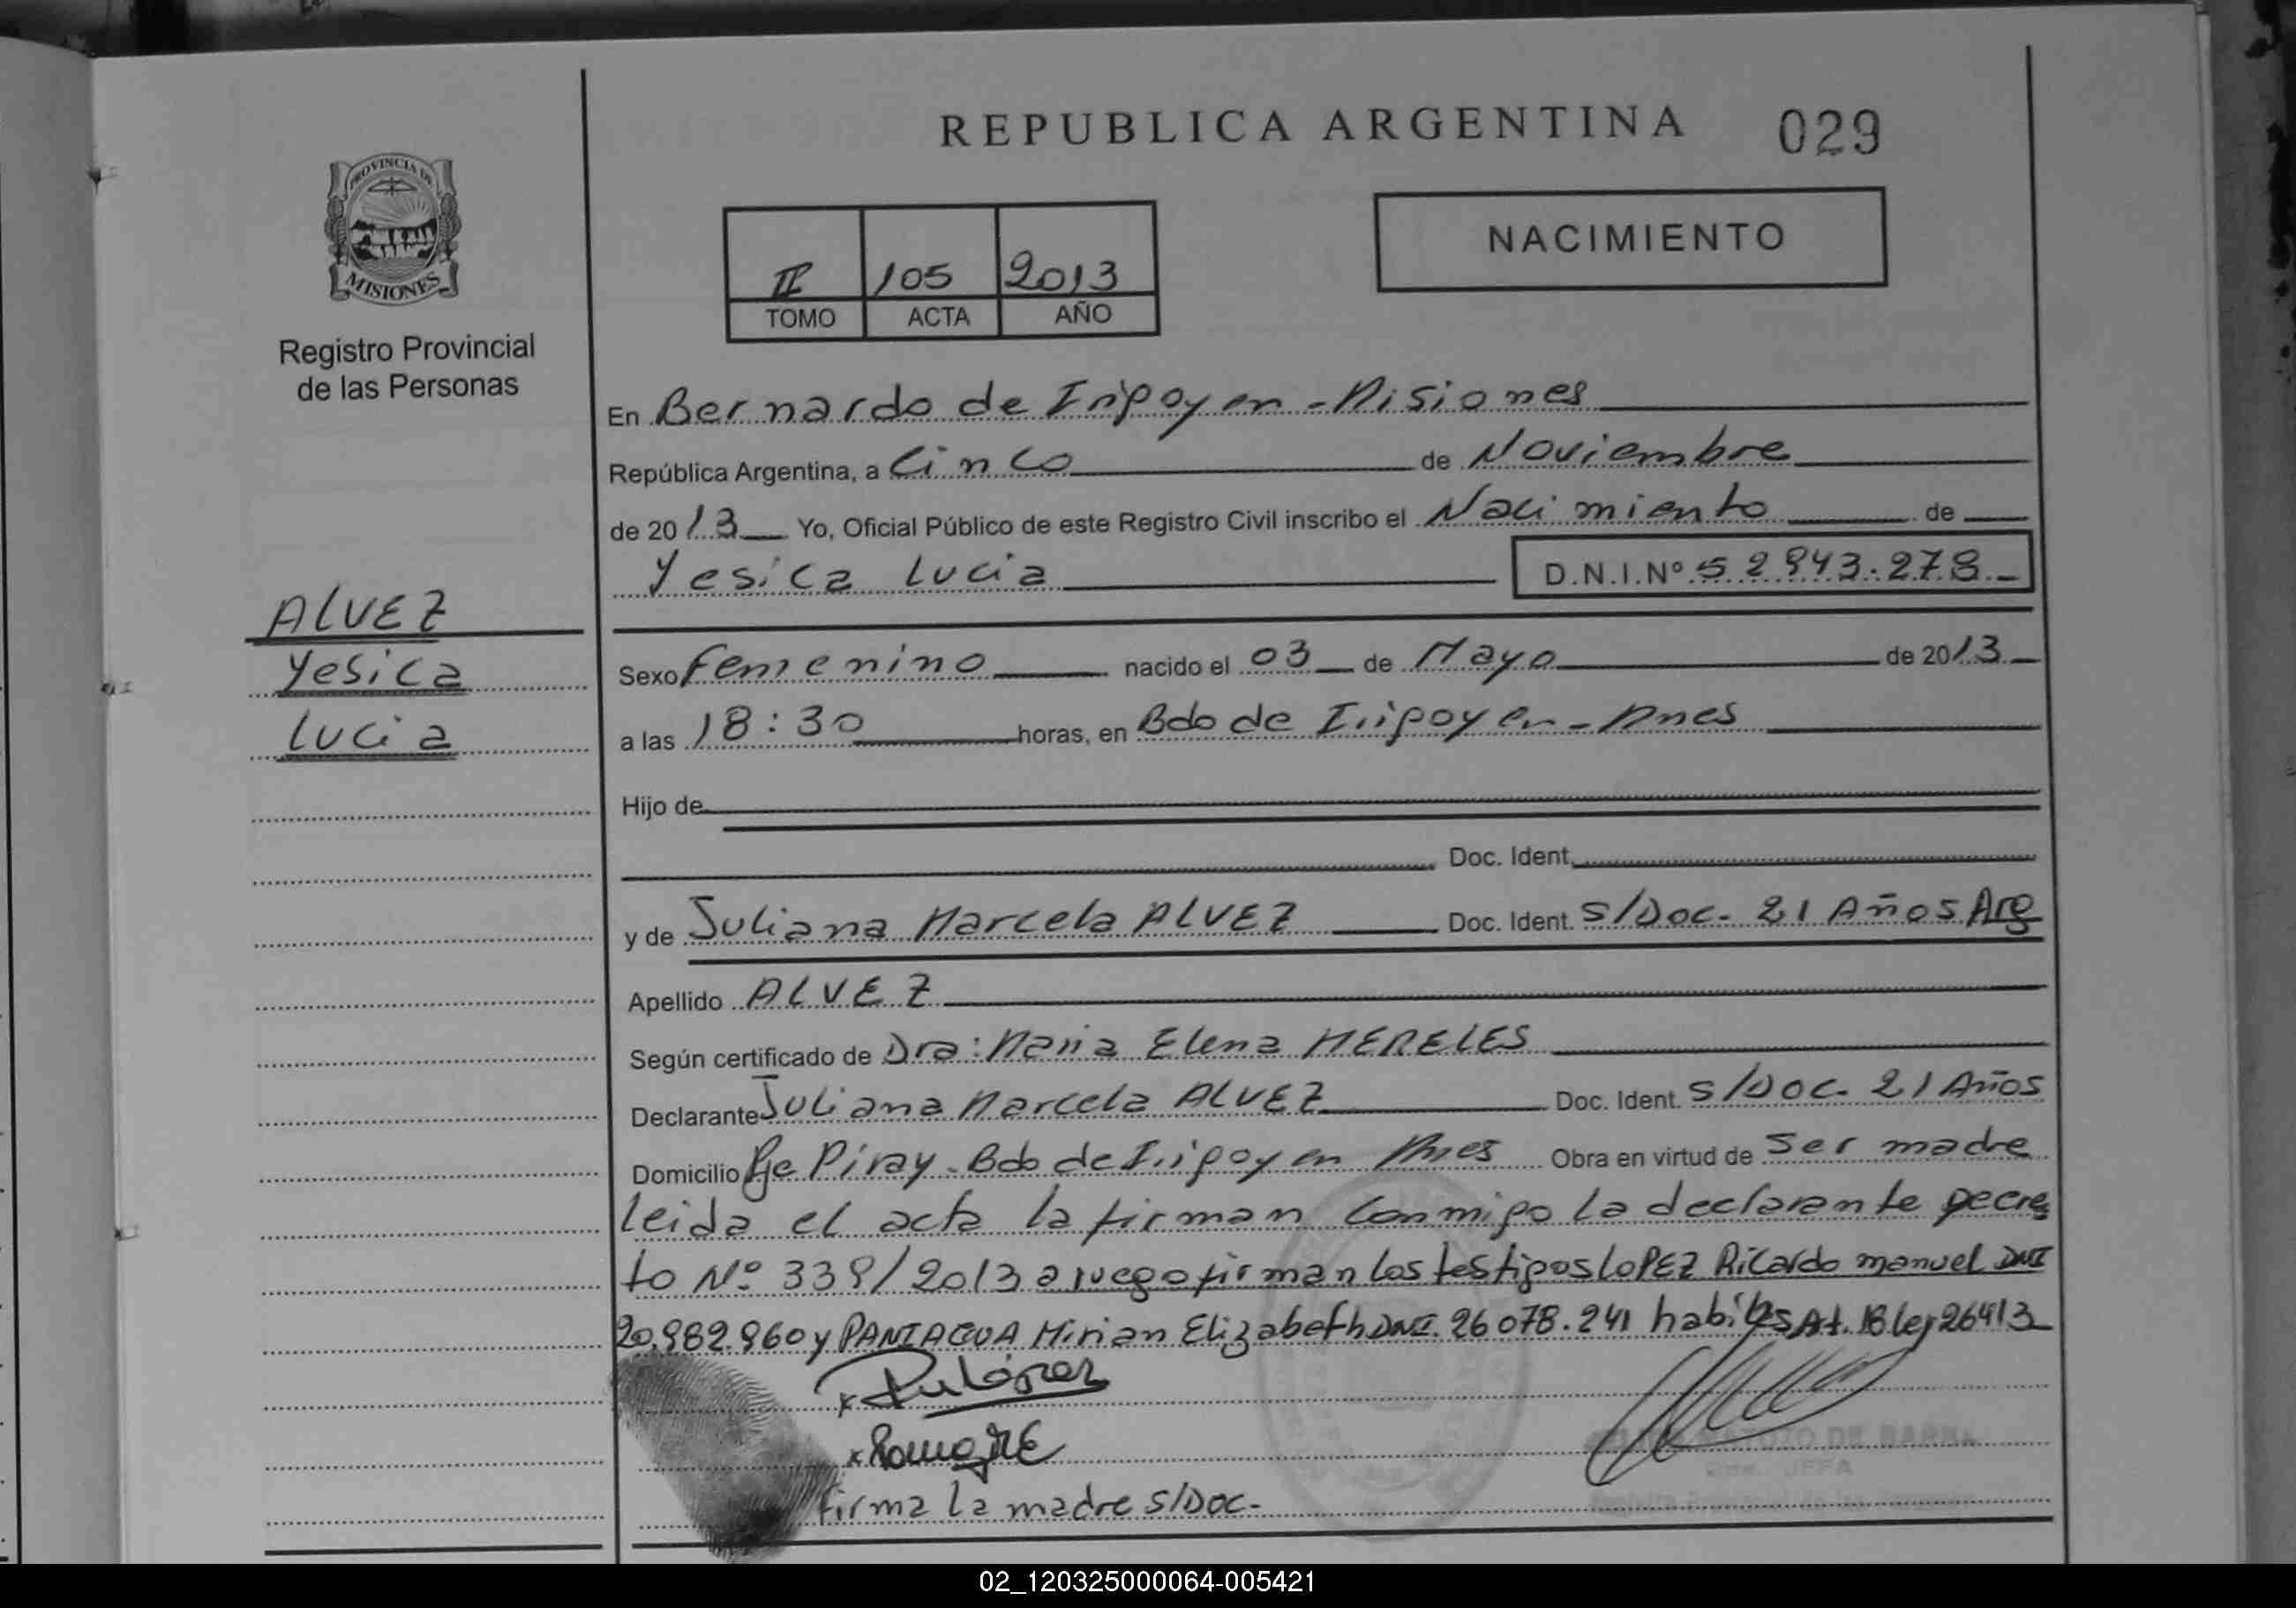 REPUBLICA ARGENTINA 029
PROVINCIA DE
MISIONES
Registro Provincial
de las Personas
II 105 2013
TOMO ACTA AÑO
NACIMIENTO
En Bernardo de Irigoyen - Misiones
República Argentina, a Cinco de Noviembre
de 2013 Yo, Oficial Público de este Registro Civil inscribo el Nacimiento de
Yesica Lucia D.N.I.Nº 52943.278
ALVEZ
Yesica
Lucia
Sexo Femenino nacido el 03 de Mayo de 2013
a las 18:30 horas, en Bdo de Irigoyen - Mnes
Hijo de
Doc. Ident.
y de Juliana Marcela ALVEZ Doc. Ident. S/Doc. 21 Años Arg
Apellido ALVEZ
Según certificado de Dra: Maria Elena MERELES
Declarante Juliana Marcela ALVEZ Doc. Ident. S/DOC. 21 Años
Domicilio Pje Piray - Bdo de Irigoyen Mnes Obra en virtud de Ser madre
leida el acta la firman conmigo la declarante Decre
to Nº 339/2013 a ruego firman los testigos LOPEZ Ricardo manuel DNI
20.982.960 y PANIAGUA Mirian Elizabeth DNI. 26078.241 habiles Art. 18 ley 26413
firma la madre S/DOC.
DE BARRA
JEFA
02_120325000064-005421